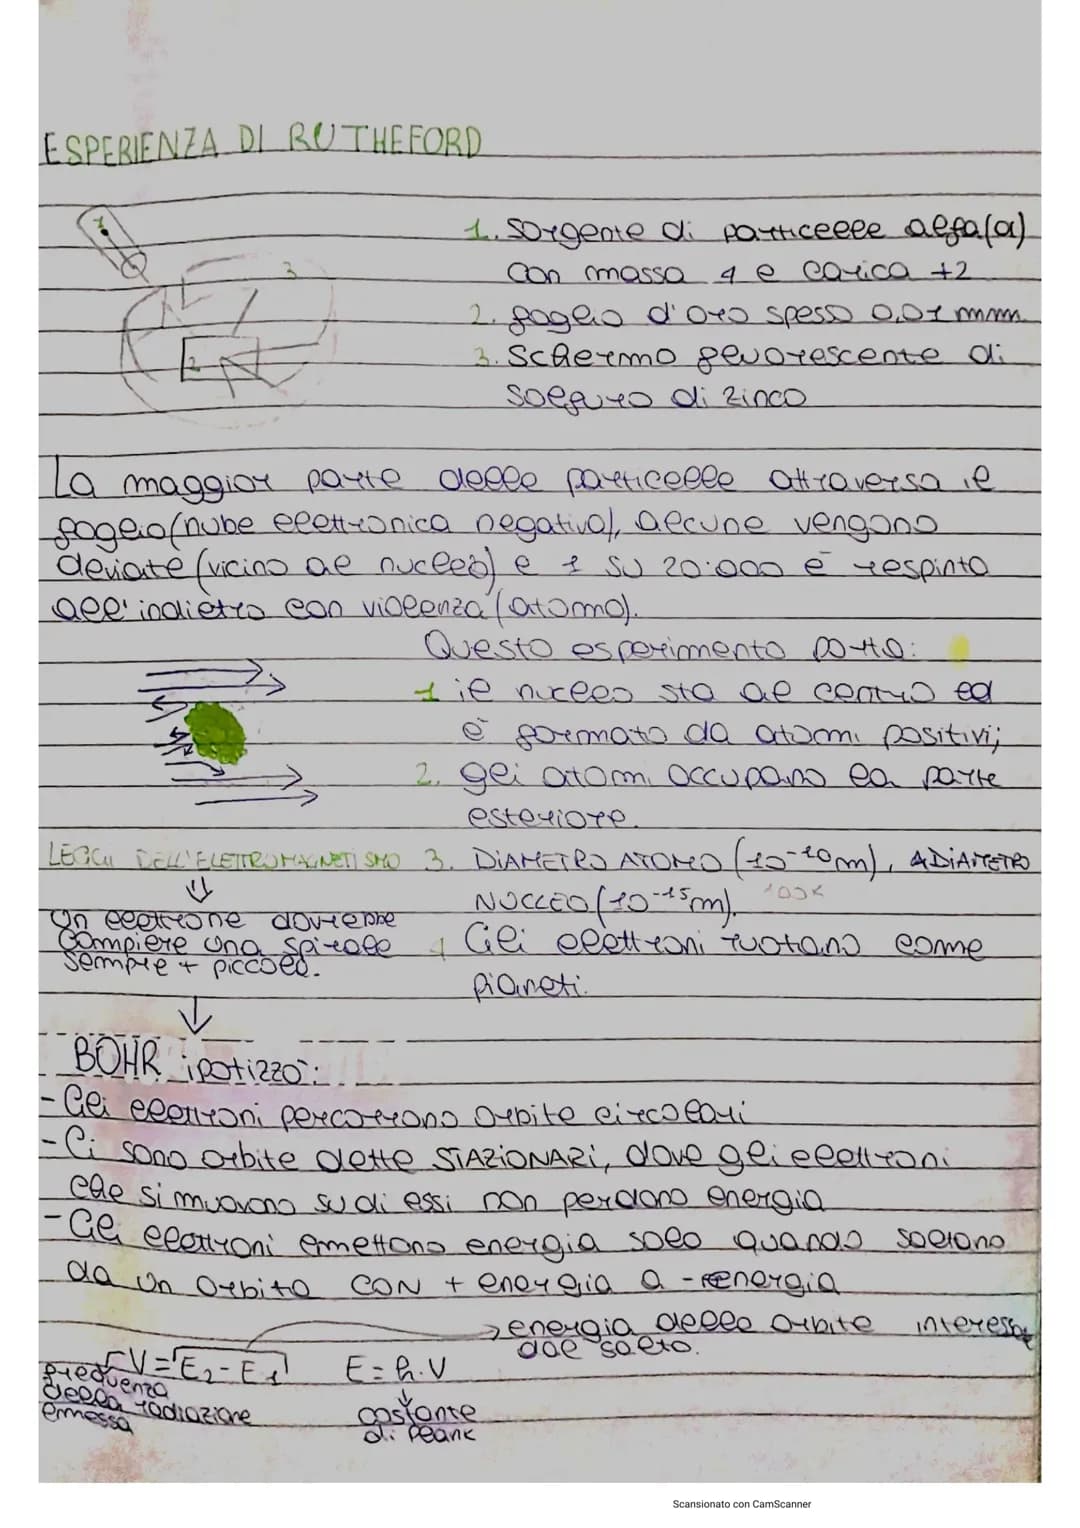 ESPERIENZA DI RUTHEFORD
1
3
2
1. Sorgente di particelle alfa(α)
con massa 4 e carica +2
2. foglio d'oro spesso 0,01 mm
3. Schermo fluorescente di
solfuro di zinco
La maggior parte delle particelle attraversa il
foglio (nube elettronica negativa), alcune vengono
deviate (vicino al nucleo) e 1 su 20.000 è respinta
all'indietro con violenza (atomo).
Questo esperimento portò:
1 il nucleo sta al centro ed
è formato da atomi positivi;
2. gli atomi occupano la parte
esteriore.
LEGGI DELL'ELETTROMAGNETISMO
Un elettrone dovrebbe
compiere una spirale
sempre + piccola.
3. DIAMETRO ATOMO (10-10m), DIAMETRO
NUCLEO (10-15m).
4 Gli elettroni ruotano come
pianeti.
BOHR ipotizzò:
- Gli elettroni percorrono orbite circolari
- Ci sono orbite dette STAZIONARI, dove gli elettroni
che si muovono su di essi non perdono energia
- Gli elettroni emettono energia solo quando saltano
da un orbita CON + energia a - energia
energia delle orbite interessate
dal salto.
V = E2 - E1 E = h.V
frequenza
della radiazione
emessa
costante
di Plank
Scansionato con CamScanner